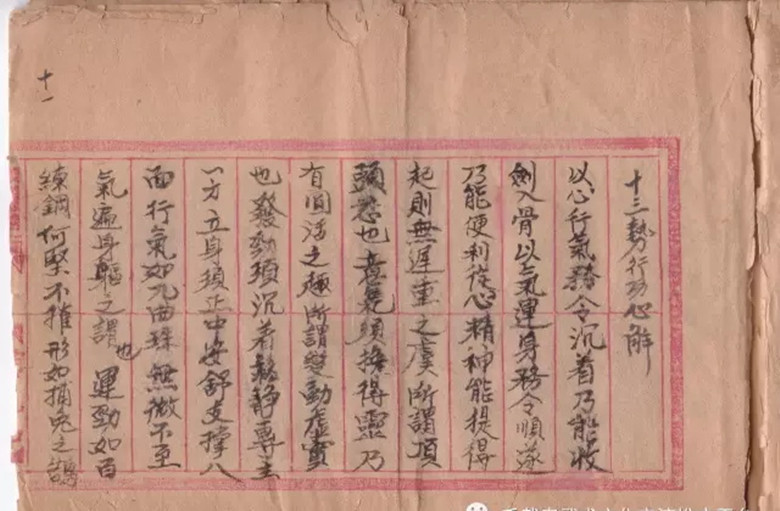 十三勢行功心解
以心行氣務令沉着乃能收
劍入骨以氣運身務令順遂
乃能便利從心精神能提得
起則無遲重之虞所謂頂
頭懸也意氣須換得靈乃
有圓活之趣所謂變動虛實
也發勁須沉着鬆靜專主
一方立身須正中安舒支撐八
面行氣如九曲珠無微不至
氣遍身軀之謂也運勁如百
練鋼何堅不摧形如捕兔之鵠
十一